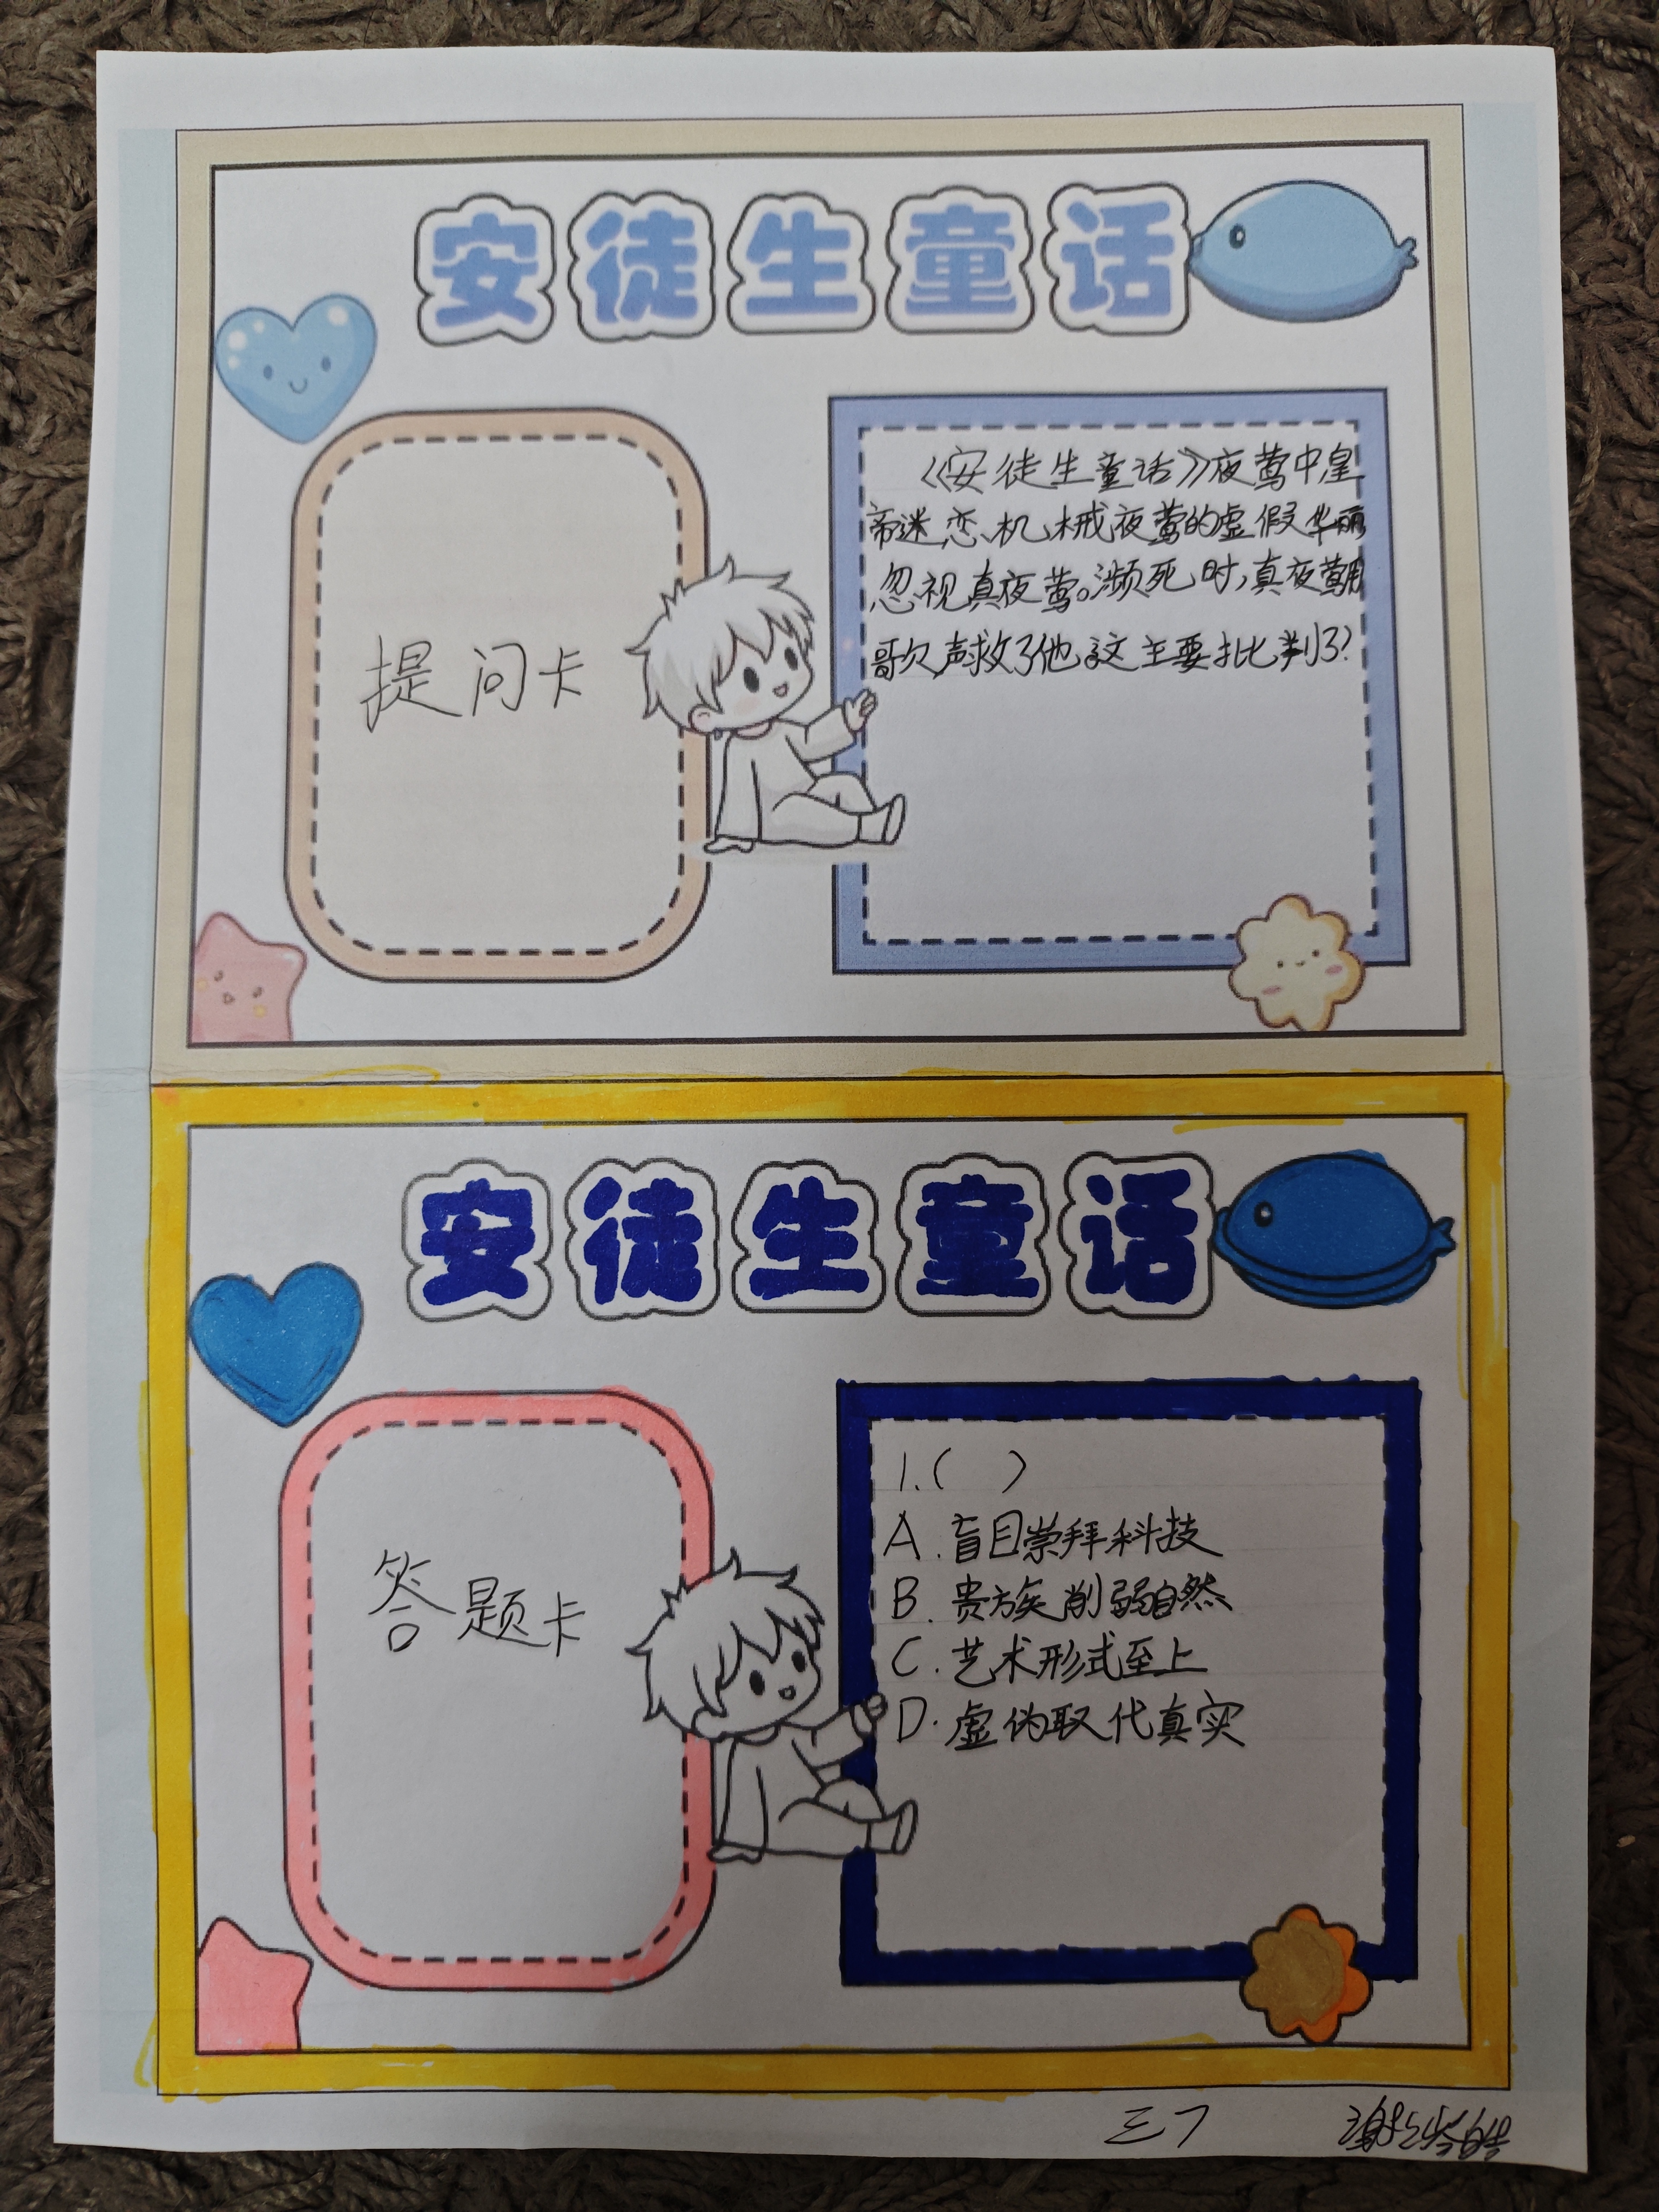 安徒生童话
提问卡
《安徒生童话》夜莺中皇
帝迷恋机械夜莺的虚假华丽
忽视真夜莺。濒死时,真夜莺用
歌声救了他,这主要批判了?
安徒生童话
答题卡
1.( )
A.盲目崇拜科技
B.贵族削弱自然
C.艺术形式至上
D.虚伪取代真实
三7